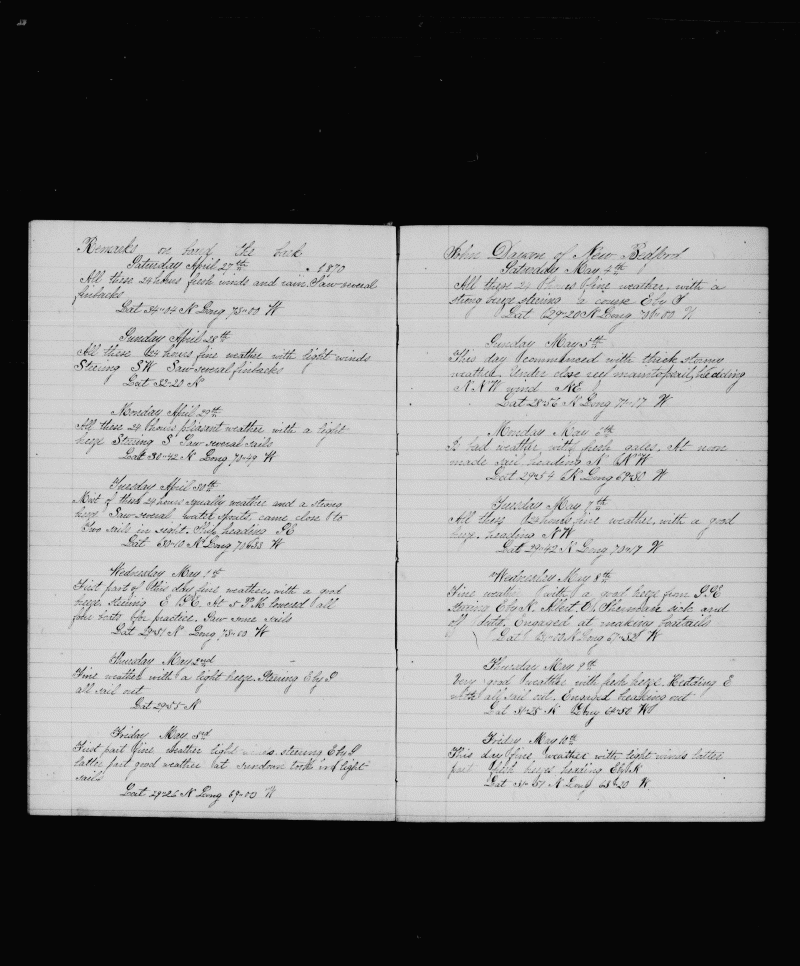 Remarks on bord the bark
Saturday April 27th 1870
All these 24 hours fresh winds and rain. Saw several
finbacks
Lat 34-04 N Long 73-00 W
Sunday April 28th
All these 24 hours fine weather with light winds
Stearing SW Saw several finbacks
Lat 32-20 N
Monday April 29th
All these 24 hours pleasant weather with a light
breze Stearing S Saw several sails
Latt 30-42 N Long 73-49 W
Tuesday April 30th
Most of these 24 hours squally weather and a strong
breze Saw several water spouts, came close to
Two sails in sight. Ship heading SE
Lat 30-10 N Long W
Wednesday May 1st
First part of this day fine weather with a good
breze stearing E At 5 P.M. lowered all
four boats for practice. Saw some sails
Lat 28-51 N Long 73-00 W
Thursday May 2nd
Fine weather with a light breze Stearing E by S
all sail out
Lat 29-55 N
Friday May 3rd
First part fine weather light winds. stearing E by S
latter part good weather at sundown took in light
sails
Lat 29-25 N Long 69-00 W
John Dawson of New Bedford
Saturday May 4th
All these 24 hours fine weather, with a
strong breze stearing a course E by S
Lat 29-20 N Long 70-00 W
Sunday May 5th
This day commenced with thick stormy
weather. Under close reef maintopsail, hedding
N N W wind NE
Lat 28-56 N Long 70-17 W
Monday May 6th
Is bad weather with fresh gales. At noon
made sail heading N N W
Lat 29-54 N Long 69-50 W
Tuesday May 7th
All these 24 hours fine weather, with a good
breze, heading N W
Lat 29-42 N Long 70-17 W
Wednesday May 8th
Fine weather with a good breze from S.E
stearing E by N. Albert O. Shearman sick and
off duty. Engaged at making foretails
Lat N Long 67-52 W
Thursday May 9th
Very good weather with fresh breze. Hedding E
with all sail out. Engaged heading out
Lat 31-25 N Long 64-50 W
Friday May 10th
This day fine weather with light winds latter
part fresh brezes heading E by N
Lat 31-51 N Long W